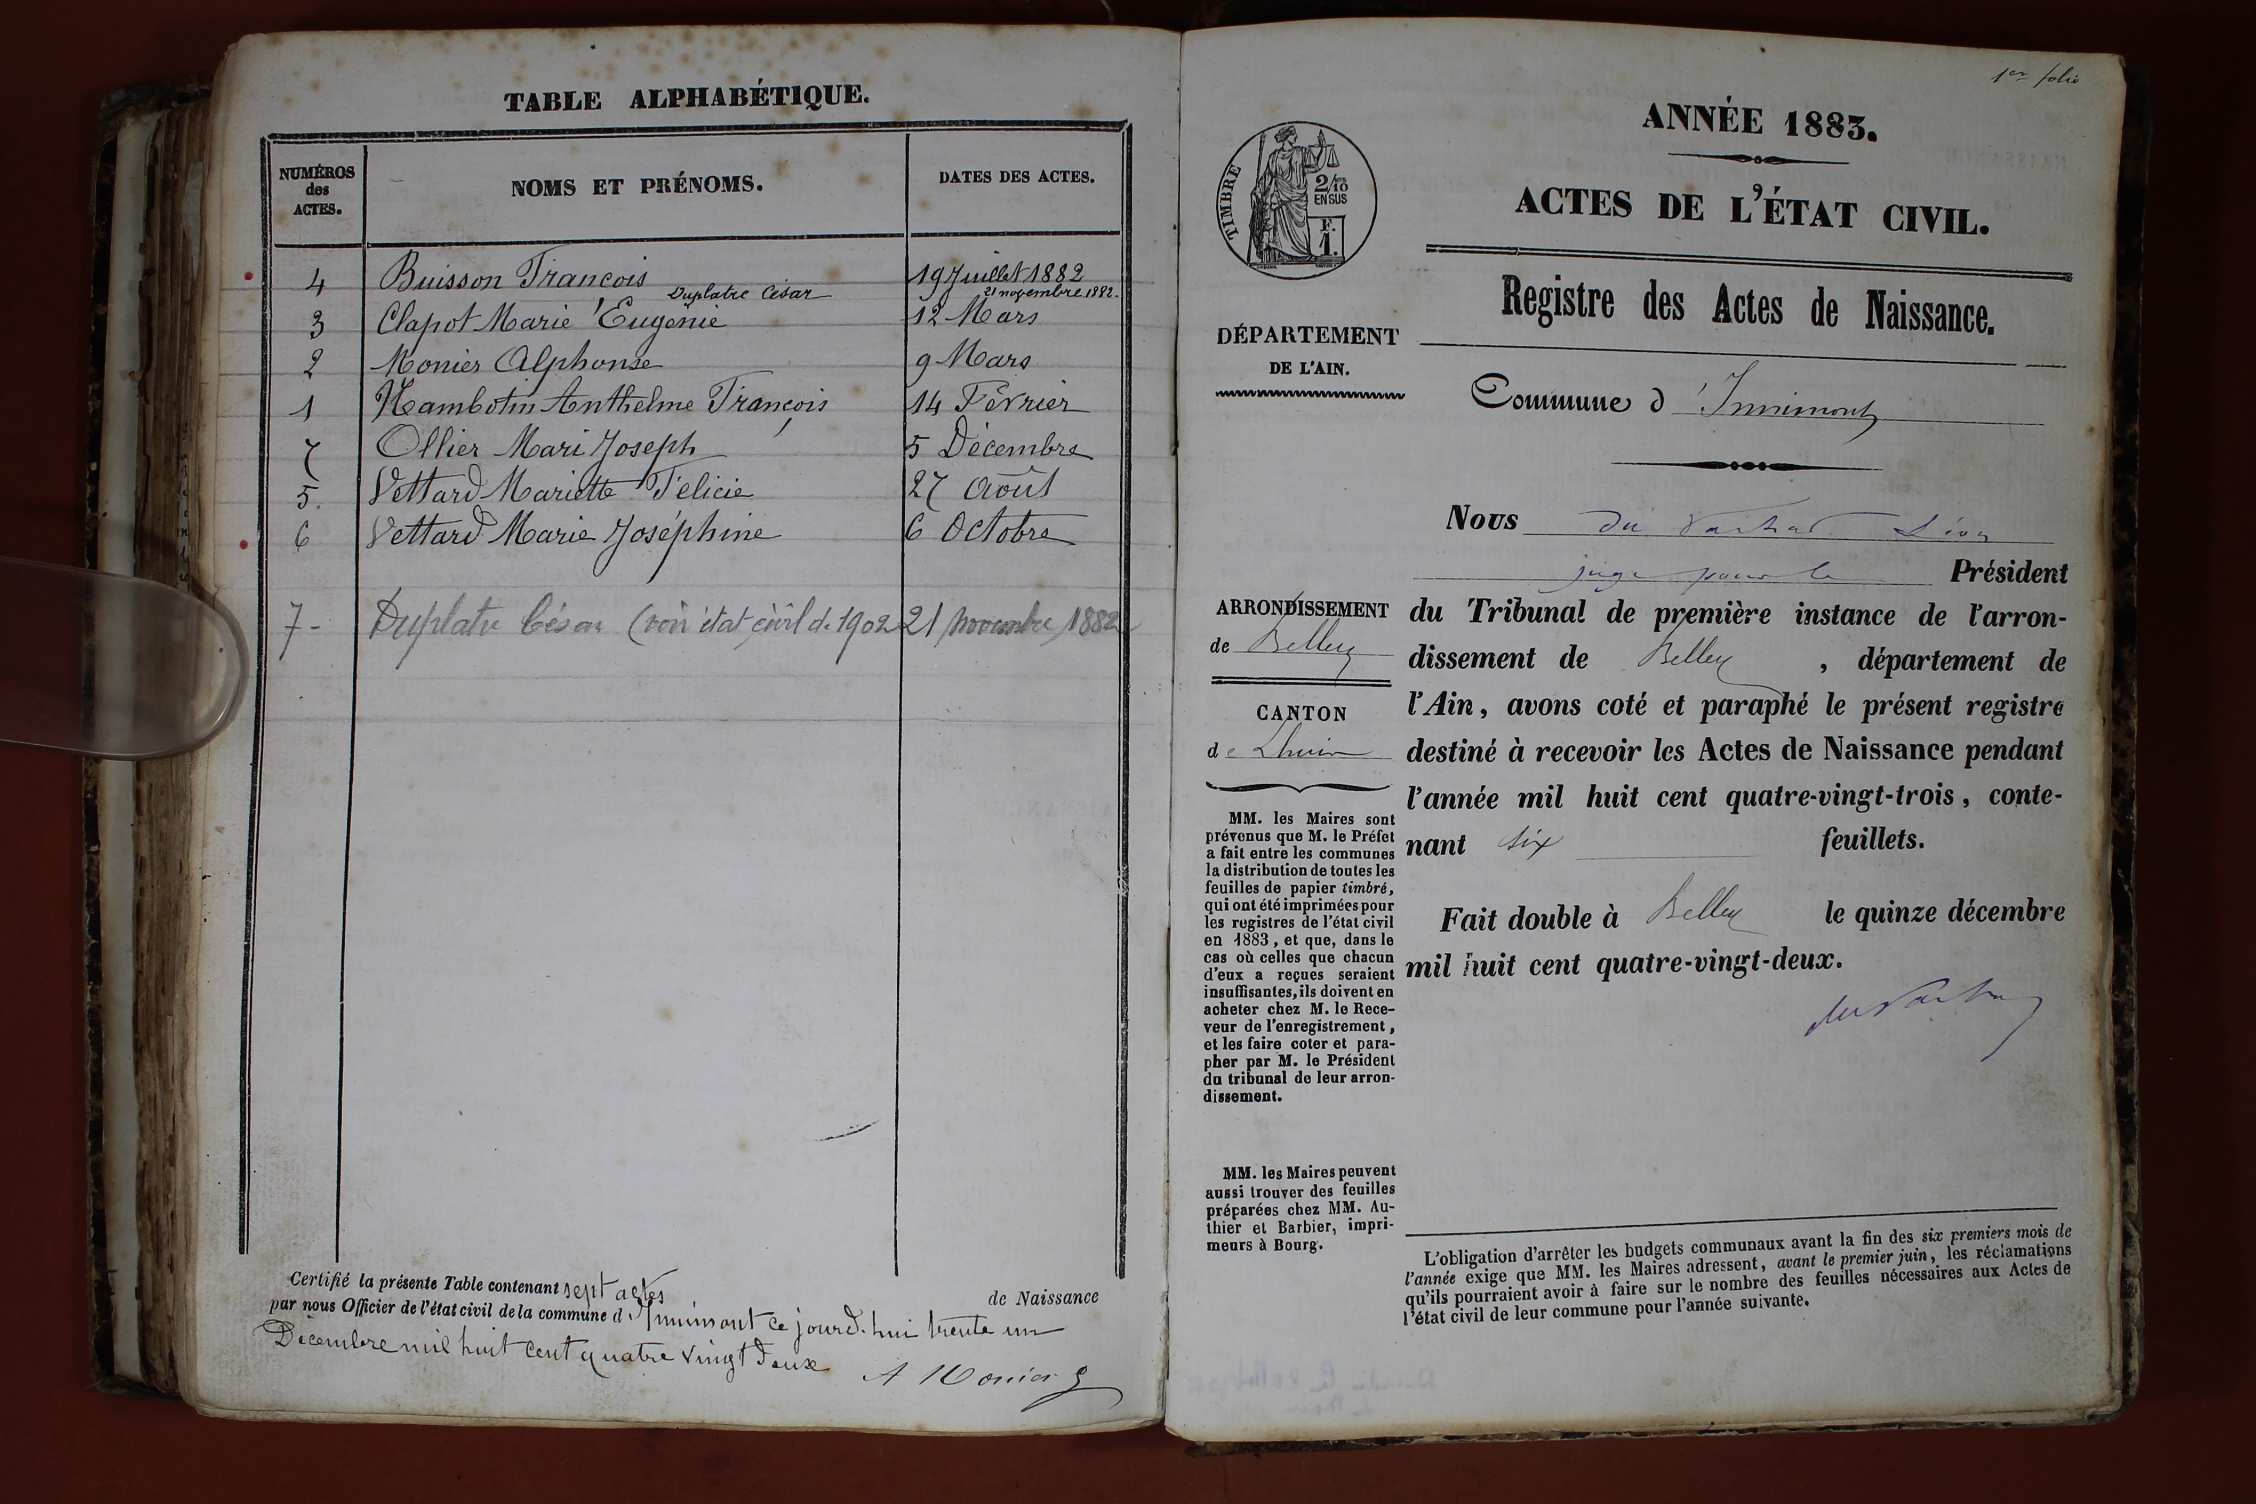 TABLE ALPHABÉTIQUE.
NUMÉROS
des
ACTES.
NOMS ET PRÉNOMS.
DATES DES ACTES.
4 Buisson François 19 Juillet 1882
Duplatre César 21 novembre 1882.
3 Clapot Marie Eugénie 12 Mars
2 Monier Alphonse 9 Mars
1 Nambotin Anthelme François 14 Février
7 Ollier Mari Joseph 5 Décembre
5. Vettard Mariette Félicie 27 Août
6 Vettard Marie Joséphine 6 Octobre
7- Duplatre César (voir état civil de 1902 21 novembre 1882
Certifié la présente Table contenant sept actes de Naissance
par nous Officier de l'état civil de la commune d'Innimont ce jourd'hui trente un
Décembre mil huit cent quatre vingt deux
A Monier
1er folio
ANNÉE 1883.
ACTES DE L'ÉTAT CIVIL.
TIMBRE
2/10
EN SUS
F.
1.
Registre des Actes de Naissance.
DÉPARTEMENT
DE L'AIN.
Commune d'Innimont
Nous du Léon
juge pour le Président
du Tribunal de première instance de l'arron-
dissement de Belley, département de
l'Ain, avons coté et paraphé le présent registre
destiné à recevoir les Actes de Naissance pendant
l'année mil huit cent quatre-vingt-trois, conte-
nant six feuillets.
Fait double à Belley le quinze décembre
mil huit cent quatre-vingt-deux.
ARRONDISSEMENT
de Belley
CANTON
de Lhuis
MM. les Maires sont
prévenus que M. le Préfet
a fait entre les communes
la distribution de toutes les
feuilles de papier timbré,
qui ont été imprimées pour
les registres de l'état civil
en 1883, et que, dans le
cas où celles que chacun
d'eux a reçues seraient
insuffisantes, ils doivent en
acheter chez M. le Rece-
veur de l'enregistrement,
et les faire coter et para-
pher par M. le Président
du tribunal de leur arron-
dissement.
MM. les Maires peuvent
aussi trouver des feuilles
préparées chez MM. Au-
thier et Barbier, impri-
meurs à Bourg.
L'obligation d'arrêter les budgets communaux avant la fin des six premiers mois de
l'année exige que MM. les Maires adressent, avant le premier juin, les réclamations
qu'ils pourraient avoir à faire sur le nombre des feuilles nécessaires aux Actes de
l'état civil de leur commune pour l'année suivante.